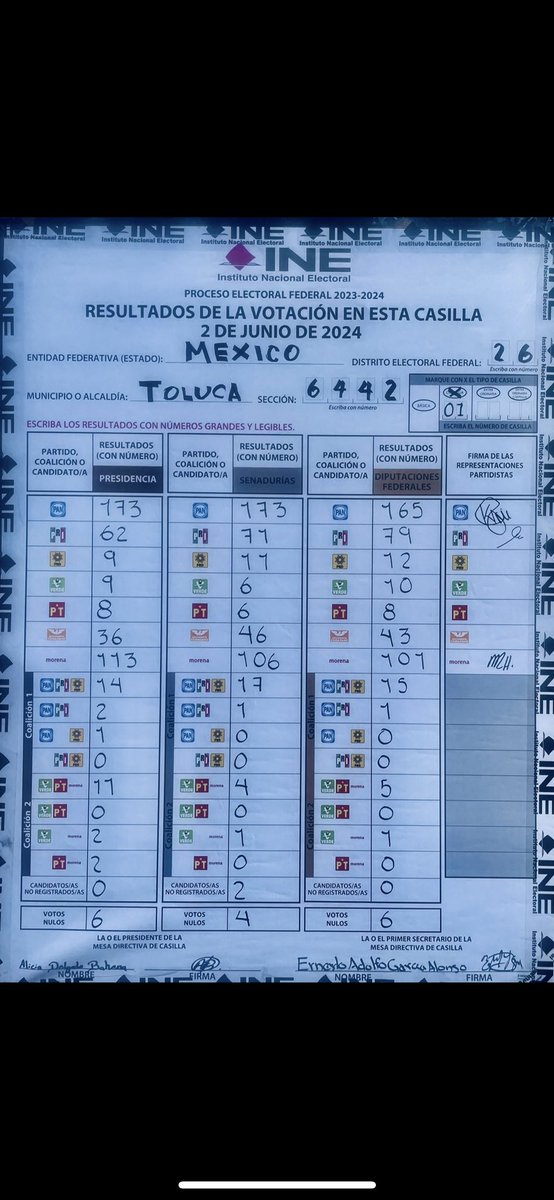 INE
Instituto Nacional Electoral
PROCESO ELECTORAL FEDERAL 2023-2024
RESULTADOS DE LA VOTACIÓN EN ESTA CASILLA
2 DE JUNIO DE 2024
ENTIDAD FEDERATIVA (ESTADO): MEXICO DISTRITO ELECTORAL FEDERAL: 2 6
Escriba con número
MUNICIPIO O ALCALDÍA: TOLUCA SECCIÓN: 6 4 4 2
Escriba con número
MARQUE CON X EL TIPO DE CASILLA
BÁSICA 01
ESCRIBA EL NÚMERO DE CASILLA
ESCRIBA LOS RESULTADOS CON NÚMEROS GRANDES Y LEGIBLES.
PARTIDO, COALICIÓN O CANDIDATO/A RESULTADOS (CON NÚMERO) PRESIDENCIA PARTIDO, COALICIÓN O CANDIDATO/A RESULTADOS (CON NÚMERO) SENADURÍAS PARTIDO, COALICIÓN O CANDIDATO/A RESULTADOS (CON NÚMERO) DIPUTACIONES FEDERALES FIRMA DE LAS REPRESENTACIONES PARTIDISTAS
PAN 173 PAN 173 PAN 165 PAN
PRI 62 PRI 71 PRI 79 PRI
PRD 9 PRD 11 PRD 12 PRD
VERDE 9 VERDE 6 VERDE 10 VERDE
PT 8 PT 6 PT 8 PT
36 46 43
morena 113 morena 106 morena 101 morena MZH.
Coalición 1
PAN PRI PRD 14 PAN PRI PRD 17 PAN PRI PRD 15
PAN PRI 2 PAN PRI 1 PAN PRI 1
PAN PRD 1 PAN PRD 0 PAN PRD 0
PRI PRD 0 PRI PRD 0 PRI PRD 0
Coalición 2
VERDE PT morena 11 VERDE PT morena 4 VERDE PT morena 5
VERDE PT 0 VERDE PT 0 VERDE PT 0
VERDE morena 2 VERDE morena 1 VERDE morena 1
PT morena 2 PT morena 0 PT morena 0
CANDIDATOS/AS NO REGISTRADOS/AS 0 CANDIDATOS/AS NO REGISTRADOS/AS 2 CANDIDATOS/AS NO REGISTRADOS/AS 0
VOTOS NULOS 6 VOTOS NULOS 4 VOTOS NULOS 6
LA O EL PRESIDENTE DE LA MESA DIRECTIVA DE CASILLA LA O EL PRIMER SECRETARIO DE LA MESA DIRECTIVA DE CASILLA
Alicia Delgado Ernesto Adolfo Garcia Alonso
NOMBRE FIRMA NOMBRE FIRMA